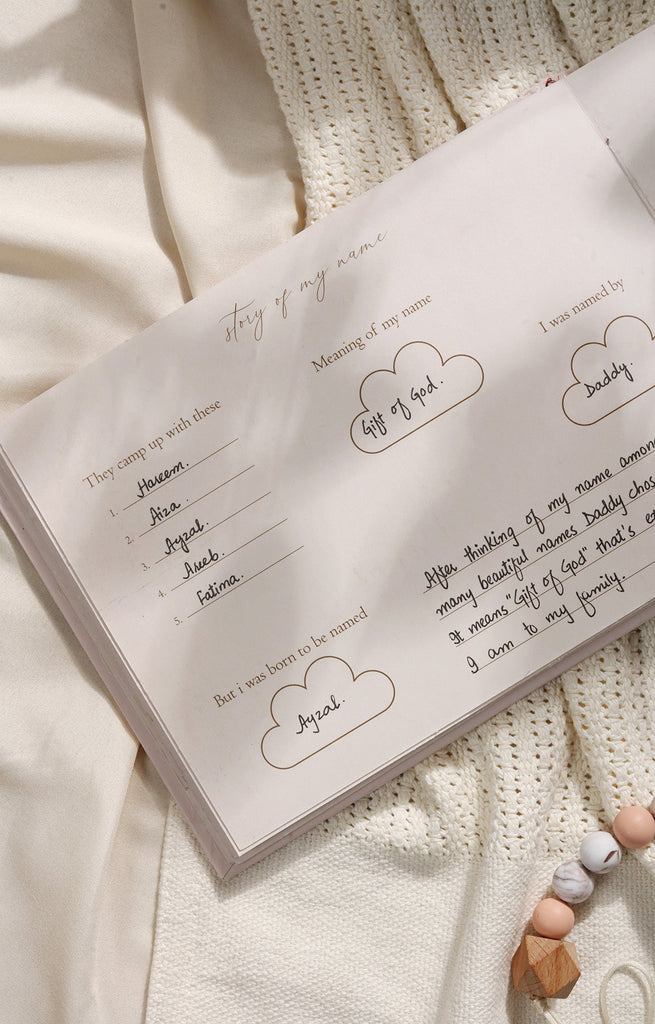 story of my name
They camp up with these
1. Hareem.
2. Aiza.
3. Ayzal.
4. Areeb.
5. Fatima.
Meaning of my name
Gift of God.
I was named by
Daddy.
But i was born to be named
Ayzal.
After thinking of my name
many beautiful names Daddy
It means "Gift of God" that's
I am to my family.